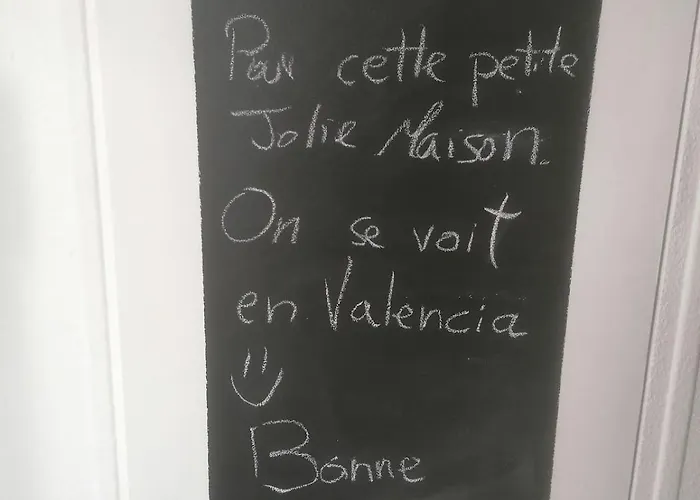 Pour cette petite
Jolie Maison.
On se voit
en Valencia
Bonne